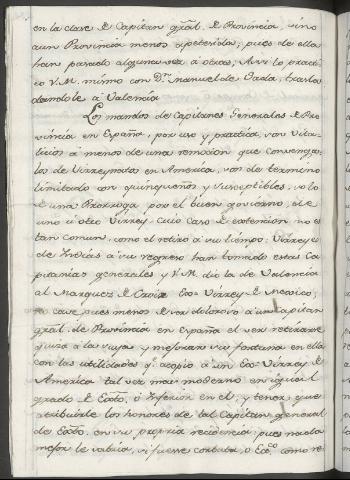 en la clase de Capitan gral. de Provincia, sino
aun Provincia menos apetecida; pues de ella
han pasado alguna vez á otras; Assi lo practi-
co V.M. mismo con Dn. Manuel de Sada, trasla-
dandole á Valencia
Los mandos de Capitanes Generales de Pro-
vincia en España, por uso y practica, son Vita-
licios á menos de una remocion que convenga;
los de Virreynatos en America, son de termino
limitado con quinquenios y susceptibles, solo
de una Prorroga por el buen govierno, de
uno ú otro Virrey cuio caso de extencion no es
tan comun, como el retiro á su tiempo; Virreyes
de Indias á su regreso han tomado estas Ca-
pitanias generales y V.M. dió la de Valencia
al Marquez de Croix Exo- Virrey de Mexico;
no cave pues menos de ser doloroso á un Capitan
gral. de Provincia en España el ver retirarse
quiza á la suya y mejorar su fortuna en ella
con las utilidades qe. acopio á un Exo- Virrey de
America tal vez mas moderno en igual
grado de Exto. ó Inferior en el, y tener que
atribuirle los honores de tal Capitan general
de Exto. en su propia recidencia; pues nada
mejor le valdria, si fuesse